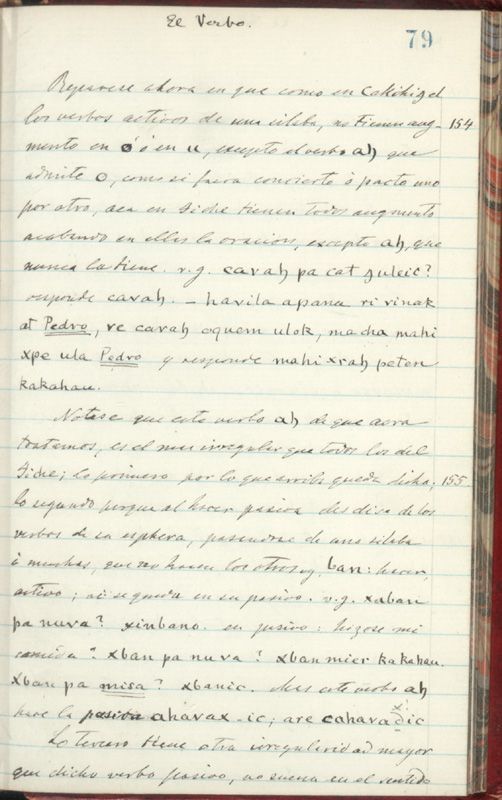 El Verbo.
79
Reparese ahora en que como en Cakchiqel
los verbos activos de una silaba, no tienen aug- 154
mento en o ó en u, excepto el verbo ah que
admite o, como si fuera concierto ò pacto uno
por otro, aca en Qiche tienen todos augmento
acabando en ellos la oracion, excepto ah, que
nunca la tiene. v.g. cavah pa cat guleic?
responde cavah. – havila apanu ri vinak
at Pedro, ve cavah oquem ulok, macha mahi
xpe ula Pedro y responde mahi xrah peten
kakahau.
Notese que este verbo ah de que aora
tratamos, es el mas irregular que todos los del
Qiche; lo primero por lo que arriba queda dicho; 155.
lo segundo porque al hacer pasiva des dice de los
verbos de su esphera, pasandose de una silaba
à muchas, que no hacen los otros v.g. ban: hacer,
activo; asi se queda en su pasivo. v.g. xaban
pa nuva? xinbano. en pasivo: hizose mi
comida? xban pa nuva? xban mier kakahau.
xban pa misa? xbanic. Mas este verbo ah
hace la pasiva ahavax-ic; are cahavaxic
Lo tercero tiene otra irregularidad mayor
que dicho verbo pasivo, no suena en el sentido